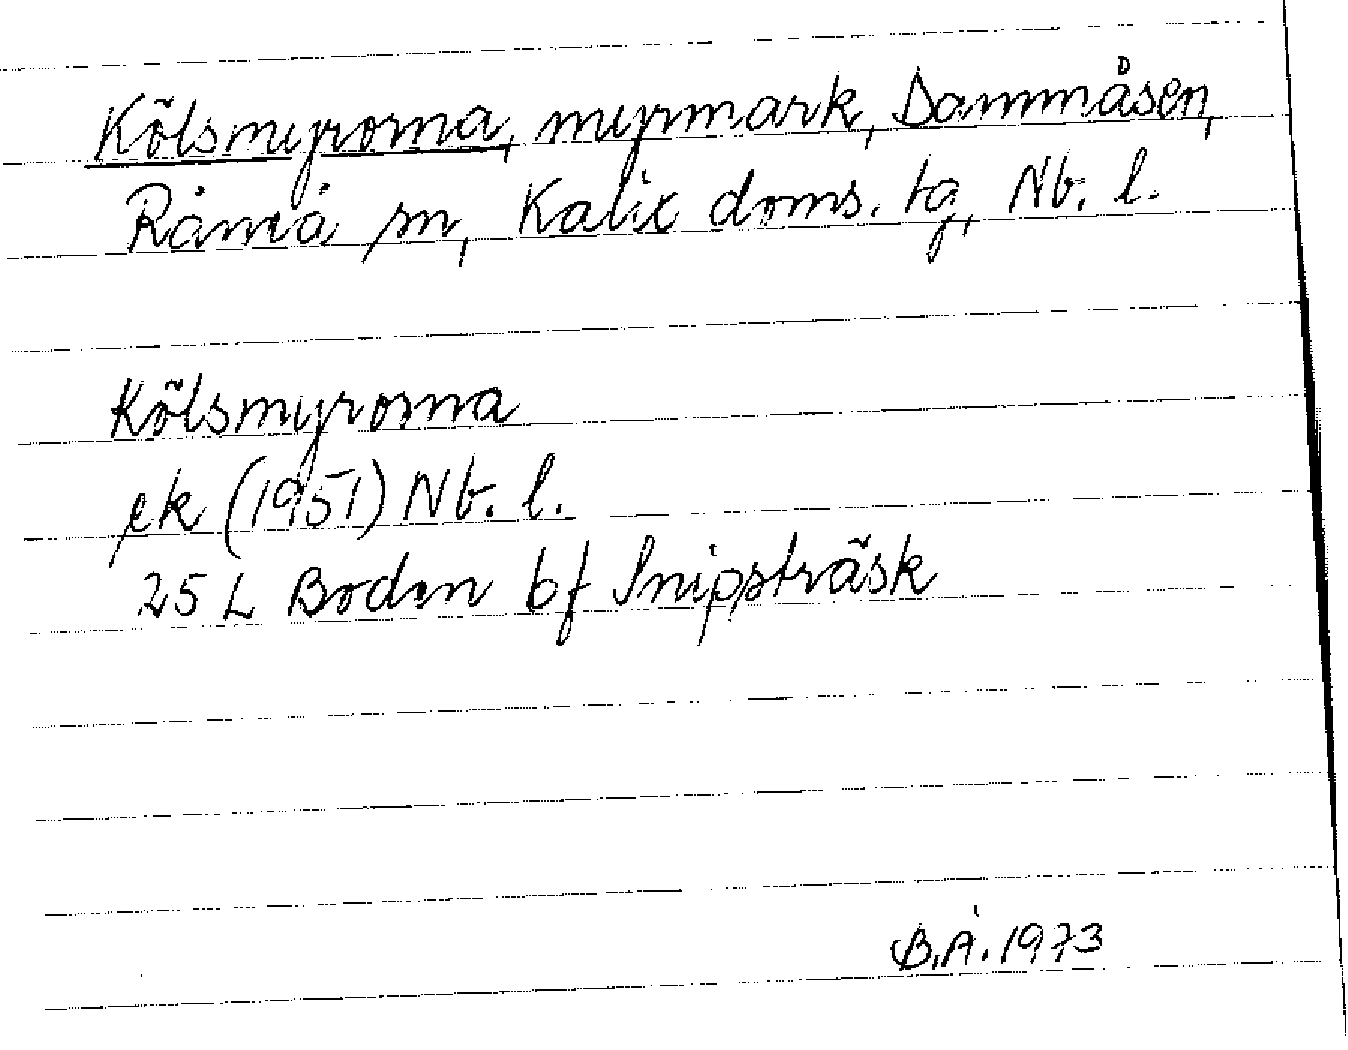 Kölsmyrorna, myrmark, Dammåsen,
Råneå sn, Kalix doms. tg, Nb. l.
Kölsmyrorna
ek (1951) Nb. l.
25 L Boden bf Snipptträsk
B.Å. 1973